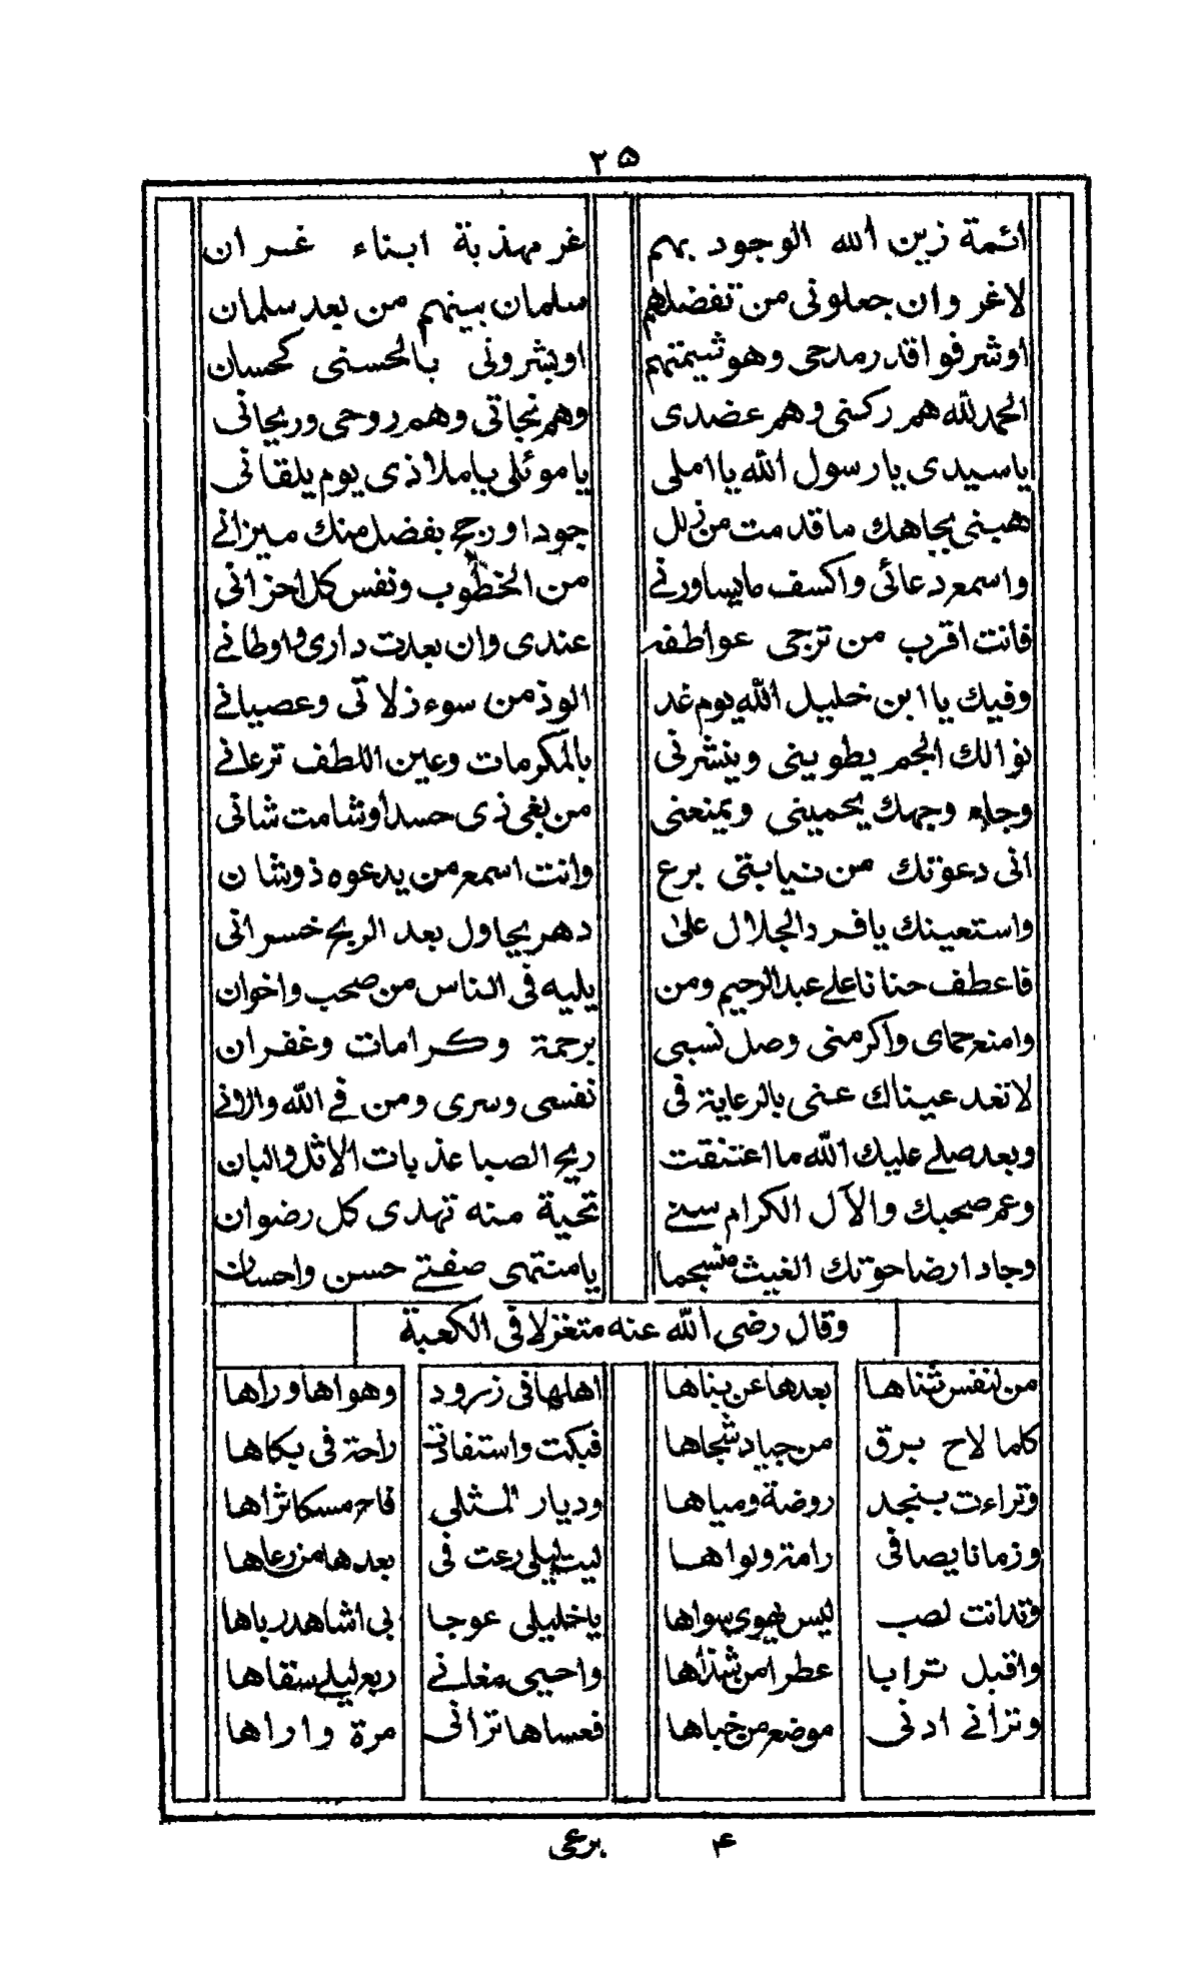 ٢٥
ائمة زين الله الوجود بهم غر مهذبة ابناء غسران
لاغر وان جعلونى من تفضلهم سلمان بينهم من بعد سلمان
اوشرفوا قدر مدحى وهو شيمتهم اوبشرونى بالحسنى كحسان
الحمد لله هم ركنى وهم عضدى وهم نجاتى وهم روحى وريحانى
ياسيدى يارسول الله ياا ملى ياموئلى ياملاذى يوم يلقانى
هبنى بجاهك ماقدمت من زلل جودا ورجح بفضل منك ميزانے
واسمع دعائى واكسف مايساورنے من الخطوب ونفس كل احزانى
فانت اقرب من ترجى عواطفه عندى وان بعدت دارى واوطانے
وفيك ياابن خليل الله يوم غد الوذ من سوء زلاتى وعصيانے
نوالك الجم يطوينى وينشرنى بالمكرمات وعين اللطف ترعانے
وجاه وجهك يحمينى ويمنعنى من بغى ذى حسد أوشامت شانى
انى دعوتك من نيابتى برع وانت اسمع من يدعوه ذوشان
واستعينك يافرد الجلال على دهر يحاول بعد الربح خسرانى
فاعطف حنانا علے عبد الرحيم ومن يليه فى الناس من صحب واخوان
وامنع حماى واكرمنى وصل نسبى برحمة وكرامات وغفران
لاتعد عيناك عنى بالرعاية فى نفسى وسرى ومن فے الله والانے
وبعد صلے عليك الله مااعتنقت ريح الصبا عذبات الاثل والبان
وعم صحبك والآل الكرام سنے تحية منه تهدى كل رضوان
وجاد ارضا حوتك الغيث منسجما يامنتهى صفتے حسن واحسان
وقال رضى الله عنه متغزلا فى الكعبة
من لنفس ثناها بعدها عن بناها اهلها فى زرود وهواها وراها
كلما لاح برق من جياد شجاها فبكت واستفادت راحة فى بكاها
وتراءت بنجد روضة ومياها وديار المثلى فاح مسكا ثراها
وزمانا يصافى رامة ولواها ليت ليلى رعت فى بعدها من رعاها
وتدانت لصب ليس يهوى سواها ياخليلى عوجا بى اشاهد رباها
واقبل ترابا عطرا من شذاها واحيى مغانے ربع ليلے سقاها
وترانے ادنى موضع من خباها فعساها ترانى مرة واراها
٤ برعى